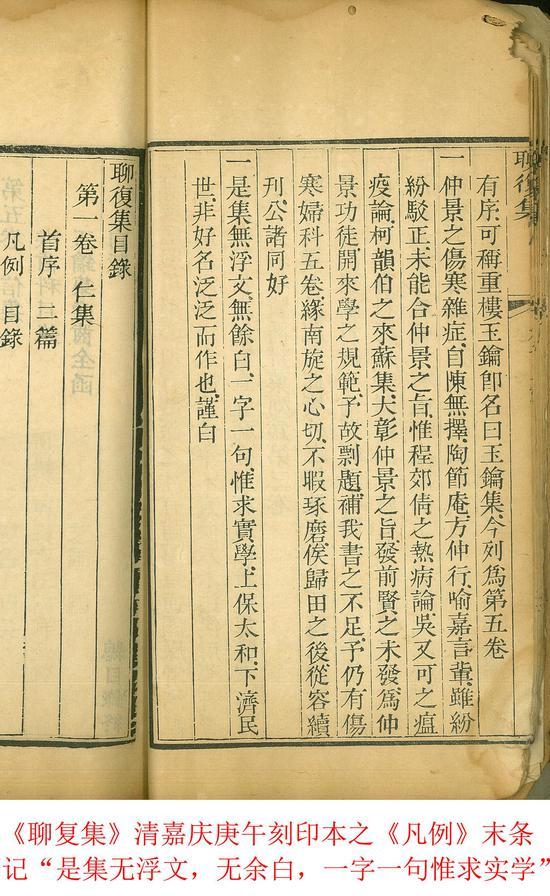 有序.可稱重樓玉鑰卽名曰玉鑰集.今列爲第五卷
一仲景之傷寒雜症.自陳無擇.陶節庵.方仲行.喻嘉言輩.雖紛
紛駁正.未能合仲景之旨.惟程郊倩之熱病論.吳又可之瘟
疫論.柯韻伯之來蘇集.大彰仲景之旨.發前賢之未發.爲仲
景功徒.開來學之規範.予故剽題.補我書之不足.予仍有傷
寒婦科五卷.緣南旋之心切.不暇琢磨.俟歸田之後從容續
刊.公諸同好
一是集無浮文.無餘白.一字一句.惟求實學.上保太和.下濟民
世.非好名泛泛而作也.謹白
聊復集目錄
第一卷 仁集
首序 二篇
凡例 目錄
聊復集
《聊复集》清嘉庆庚午刻印本之《凡例》末条
记“是集无浮文，无余白，一字一句惟求实学”